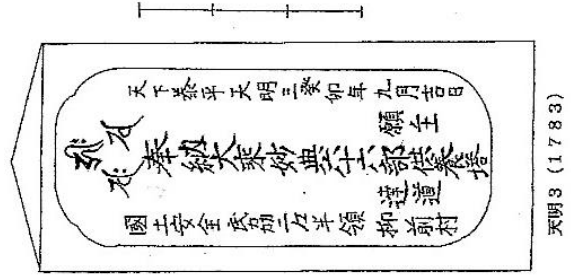 天下泰平天明三癸卯年九月吉日
願主
奉納大乗妙典六十六部供養塔
達道
國土安全武刕二合半領 前村
天明3(1783)